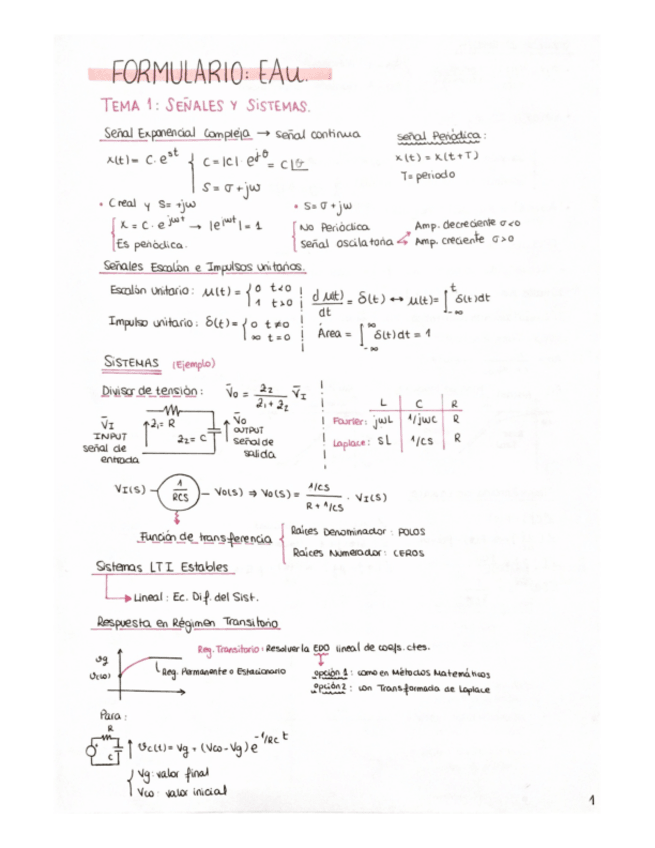 FORMULARIO: EAu.
TEMA 1: SEÑALES Y SISTEMAS.
Señal Exponencial Compleja → señal continua
x(t) = C·e^st { C = |C|·e^jθ = C∠θ
S = σ + jω
Señal Periódica:
x(t) = x(t+T)
T = periodo
• C real y S = +jω
x = C·e^jωt → |e^jωt| = 1
Es periódica.
• S = σ + jω
No Periódica
Señal oscilatoria
Amp. decreciente σ<0
Amp. creciente σ>0
Señales Escalón e Impulsos unitarios.
Escalón unitario: μ(t) = { 0 t<0
1 t>0
d μ(t)/dt = δ(t) ↔ μ(t) = ∫_-∞^t δ(t)dt
Impulso unitario: δ(t) = { 0 t≠0
∞ t=0
Área = ∫_-∞^∞ δ(t)dt = 1
SISTEMAS (Ejemplo)
Divisor de tensión: V̄o = Z2/(Z1+Z2) V̄I
V̄I
INPUT
señal de
entrada
Z1 = R
Z2 = C
V̄o
OUTPUT
señal de
salida
L C R
Fourier: jωL 1/jωC R
Laplace: SL 1/CS R
VI(S) – 1/RCS – Vo(S) ⇒ Vo(S) = (1/CS)/(R + 1/CS) · VI(S)
Función de transferencia
Raíces Denominador: POLOS
Raíces Numerador: CEROS
Sistemas LTI Estables
Lineal: Ec. Dif. del Sist.
Respuesta en Régimen Transitorio
Reg. Transitorio: Resolver la EDO lineal de coefs. ctes.
vg
Vc(o)
Reg. Permanente o Estacionario
opción 1: como en Métodos Matemáticos
opción 2: con Transformada de Laplace
Para:
R
C
vc(t) = Vg + (Vco - Vg) e^-1/RC t
Vg: valor final
Vco: valor inicial
1